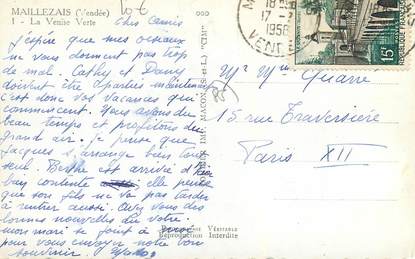 MAILLEZAIS (Vendée)
1 - La Venise Verte
10 €
Chers Amis
J'espère que mes oiseaux
ne vous donnent pas trop
de mal. Cathy et Dany
doivent être parties maintenant
c'est donc vos vacances qui
commencent. Nous avons du
beau temps et profitons du
grand air. Je pense que
Jacques s'arrange bien tout
seul. Berthe est arrivée d'hier
bien contente elle pense
que son fils ne va pas tarder
à rentrer aussi. Avez vous des
bonnes nouvelles du vôtre.
mon mari se joint à moi
pour vous envoyer notre bon
souvenir.
"CIM"
IMP. MACON (S-et-L)
17-7
1956
VENDÉE
15F
Mr Mme Quarré
15 rue Traversière
Paris XII
Véritable
Reproduction Interdite